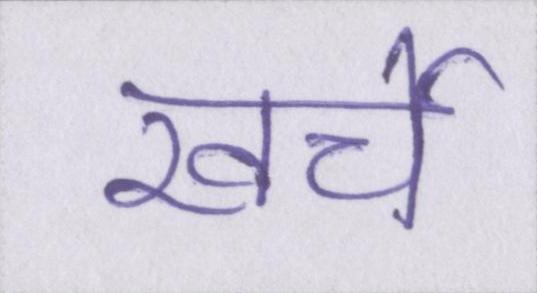 खर्चे